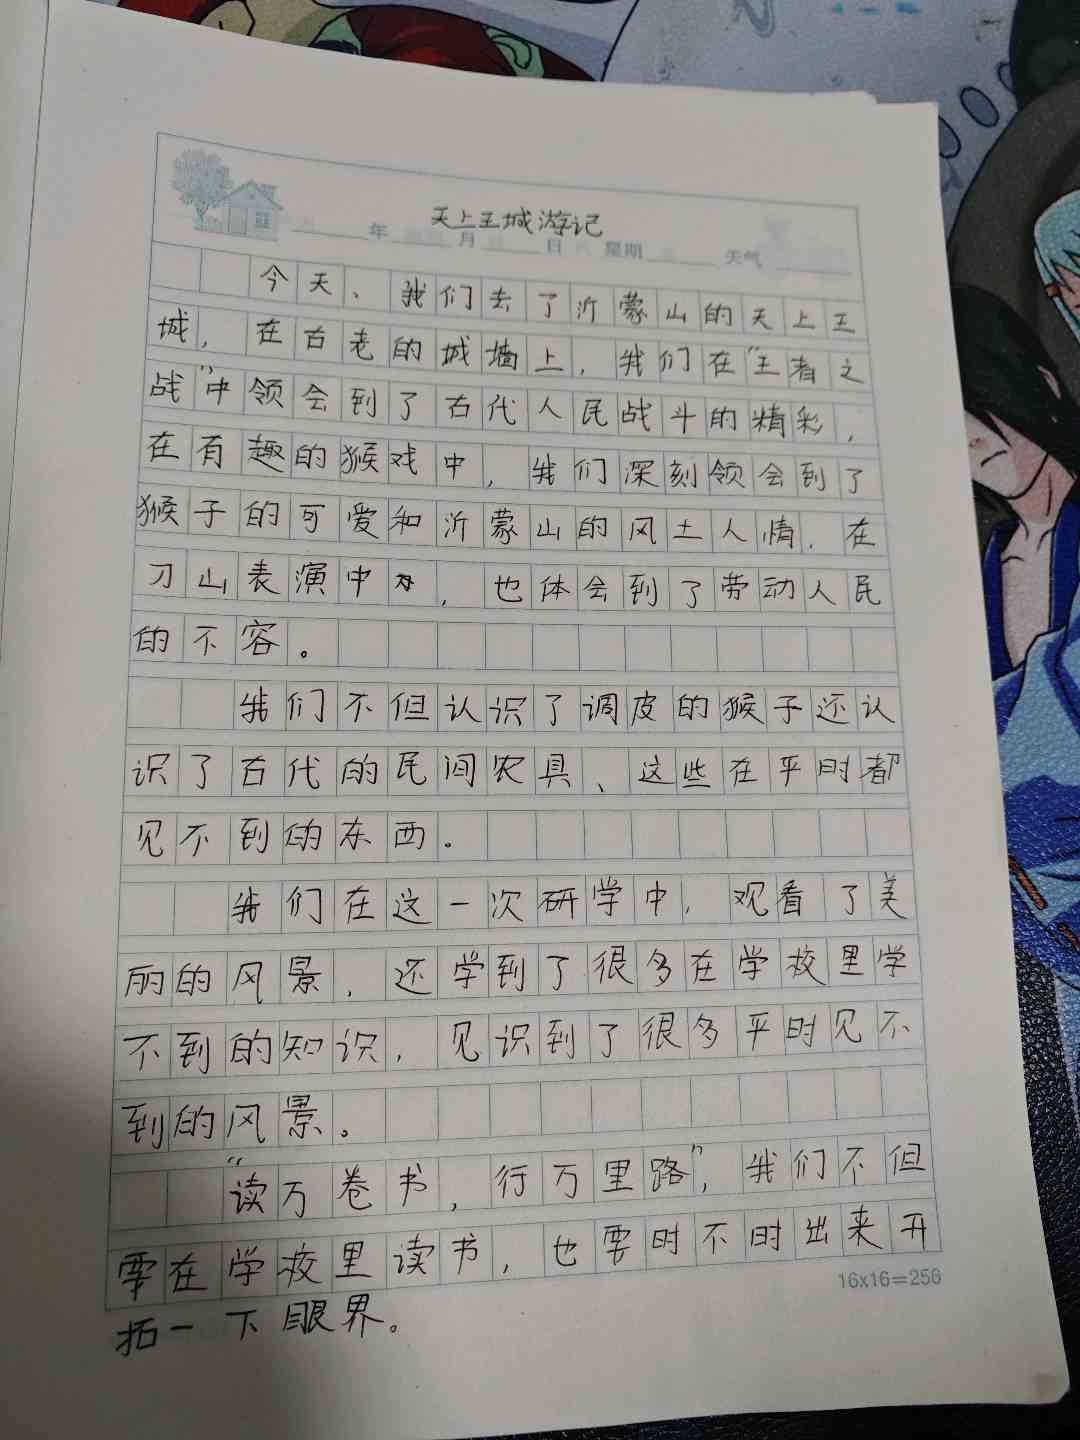 天上王城游记
年 月 日 星期 天气
今天、我们去了沂蒙山的天上王
城，在古老的城墙上，我们在“王者之
战”中领会到了古代人民战斗的精彩，
在有趣的猴戏中，我们深刻领会到了
猴子的可爱和沂蒙山的风土人情，在
刀山表演中，也体会到了劳动人民
的不容。
我们不但认识了调皮的猴子还认
识了古代的民间农具、这些在平时都
见不到的东西。
我们在这一次研学中，观看了美
丽的风景，还学到了很多在学校里学
不到的知识，见识到了很多平时见不
到的风景。
“读万卷书，行万里路”，我们不但
要在学校里读书，也要时不时出来开
16x16=256
拓一下眼界。